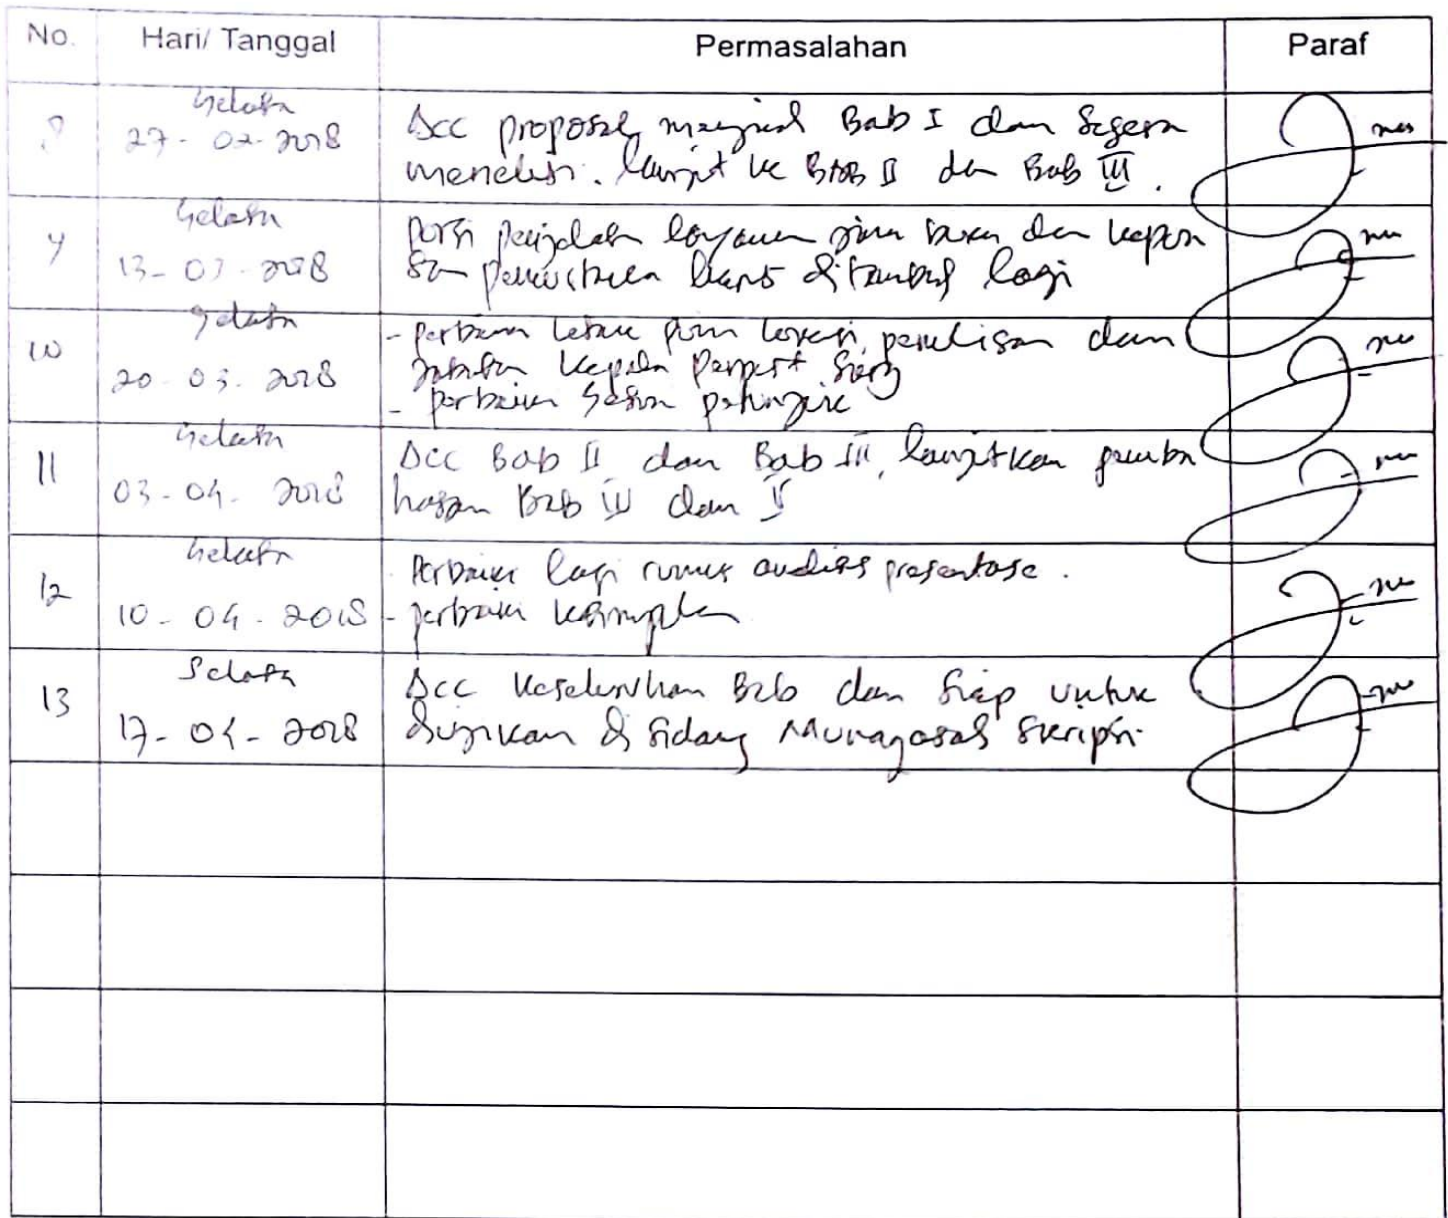 No. Hari/ Tanggal Permasalahan Paraf
8 Selasa
27-02-2018
Acc proposal menjadi Bab I dan Segera
meneliti. lanjut ke BAB II dan Bab III.
9 Selasa
13-03-2018
Porsi penjelasan layanan
lagi
10 Selasa
20-03-2018
- perbaiki penulisan dan
kepala
- perbaiki
11 Selasa
03-04-2018
Acc Bab II dan Bab III, lanjutkan pemba
hasan Bab IV dan V
12 Selasa
10-04-2018
Perbaiki lagi rumus analisis presentase.
- perbaiki kesimpulan
13 Selasa
17-04-2018
Acc Keseluruhan Bab dan Siap untuk
diujikan di Sidang Munaqosah Skripsi